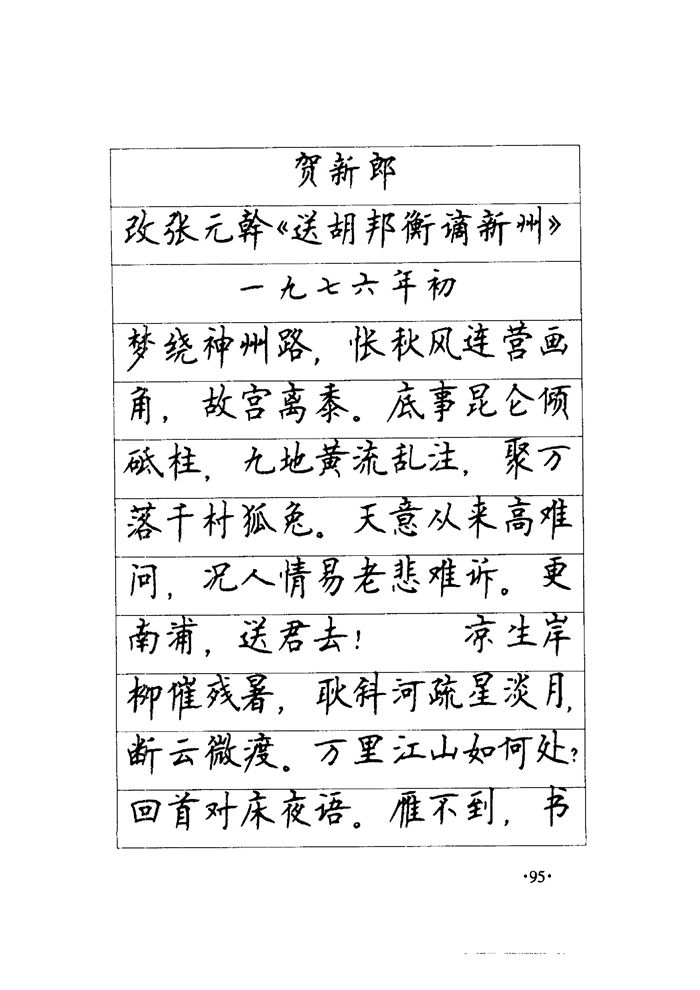 贺新郎
改张元幹《送胡邦衡谪新州》
一九七六年初
梦绕神州路，怅秋风连营画
角，故宫离黍。底事昆仑倾
砥柱，九地黄流乱注，聚万
落千村狐兔。天意从来高难
问，况人情易老悲难诉。更
南浦，送君去！　　凉生岸
柳催残暑，耿斜河疏星淡月，
断云微渡。万里江山如何处？
回首对床夜语。雁不到，书
·95·